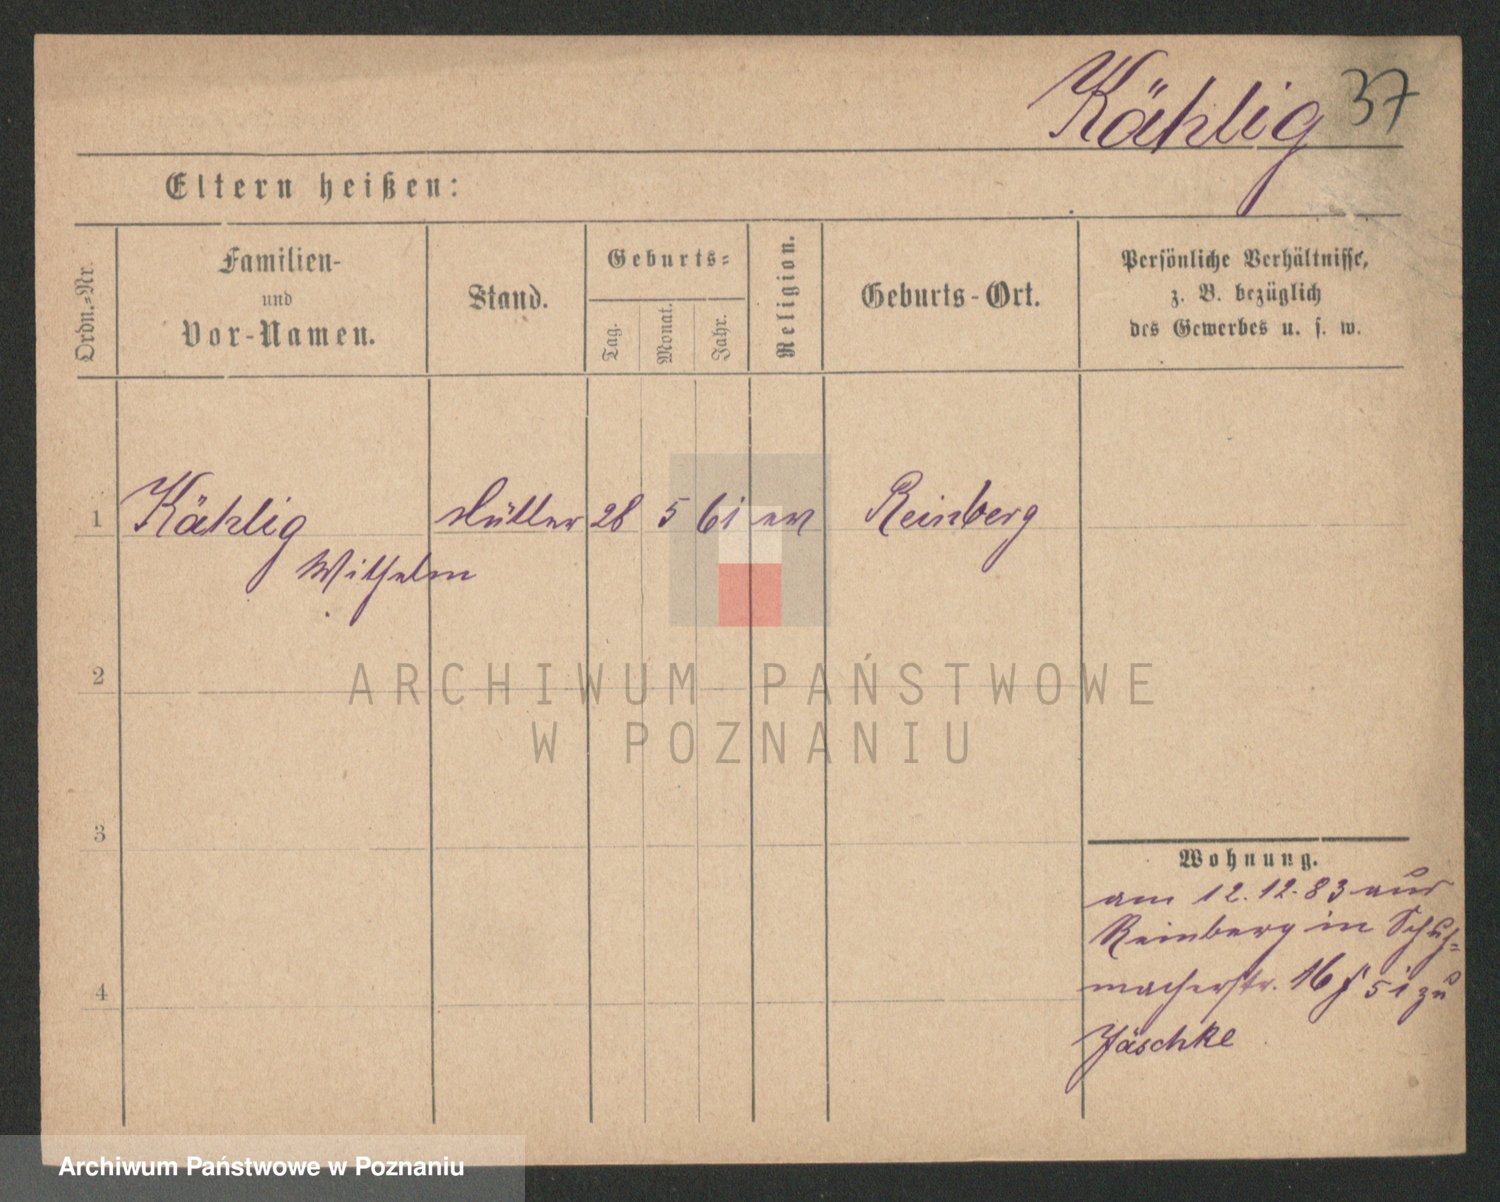 Kählig 37
Eltern heißen:
Ordn.-Nr.
Familien-
und
Vor-Namen.
Stand.
Geburts-
Tag.
Monat.
Jahr.
Religion.
Geburts-Ort.
Persönliche Verhältnisse,
z. B. bezüglich
des Gewerbes u. s. w.
1 Kählig 28 5 61 ev Reinberg
Wilhelm
2
3
4
Wohnung.
am 12.12.83 aus
Reinberg in Schuh-
macherstr. 16 51 zu
Jäschke
ARCHIWUM PAŃSTWOWE
W POZNANIU
Archiwum Państwowe w Poznaniu